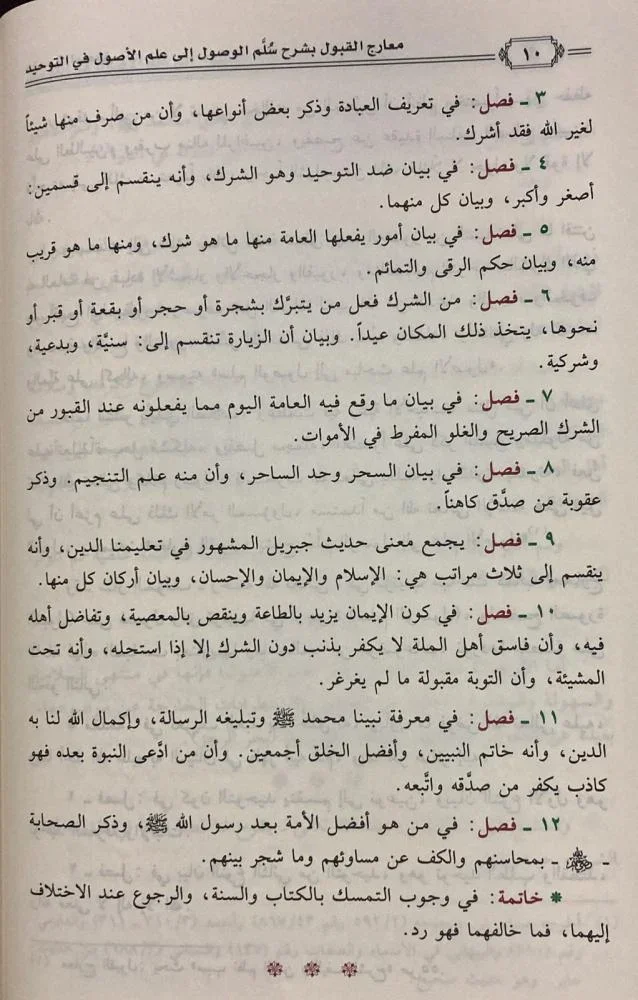 ١٠
معارج القبول بشرح سُلَّم الوصول إلى علم الأصول في التوحيد
٣ ـ فصل: في تعريف العبادة وذكر بعض أنواعها، وأن من صرف منها شيئاً
لغير الله فقد أشرك.
٤ ـ فصل: في بيان ضد التوحيد وهو الشرك، وأنه ينقسم إلى قسمين:
أصغر وأكبر، وبيان كل منهما.
٥ ـ فصل: في بيان أمور يفعلها العامة منها ما هو شرك، ومنها ما هو قريب
منه، وبيان حكم الرقى والتمائم.
٦ ـ فصل: من الشرك فعل من يتبرَّك بشجرة أو حجر أو بقعة أو قبر أو
نحوها، يتخذ ذلك المكان عيداً. وبيان أن الزيارة تنقسم إلى: سنيَّة، وبدعية،
وشركية.
٧ ـ فصل: في بيان ما وقع فيه العامة اليوم مما يفعلونه عند القبور من
الشرك الصريح والغلو المفرط في الأموات.
٨ ـ فصل: في بيان السحر وحد الساحر، وأن منه علم التنجيم. وذكر
عقوبة من صدَّق كاهناً.
٩ ـ فصل: يجمع معنى حديث جبريل المشهور في تعليمنا الدين، وأنه
ينقسم إلى ثلاث مراتب هي: الإسلام والإيمان والإحسان، وبيان أركان كل منها.
١٠ ـ فصل: في كون الإيمان يزيد بالطاعة وينقص بالمعصية، وتفاضل أهله
فيه، وأن فاسق أهل الملة لا يكفر بذنب دون الشرك إلا إذا استحله، وأنه تحت
المشيئة، وأن التوبة مقبولة ما لم يغرغر.
١١ ـ فصل: في معرفة نبينا محمد ﷺ وتبليغه الرسالة، وإكمال الله لنا به
الدين، وأنه خاتم النبيين، وأفضل الخلق أجمعين. وأن من ادَّعى النبوة بعده فهو
كاذب يكفر من صدَّقه واتَّبعه.
١٢ ـ فصل: في من هو أفضل الأمة بعد رسول الله ﷺ، وذكر الصحابة
ـ ـ بمحاسنهم والكف عن مساوئهم وما شجر بينهم.
* خاتمة: في وجوب التمسك بالكتاب والسنة، والرجوع عند الاختلاف
إليهما، فما خالفهما فهو رد.
* * *